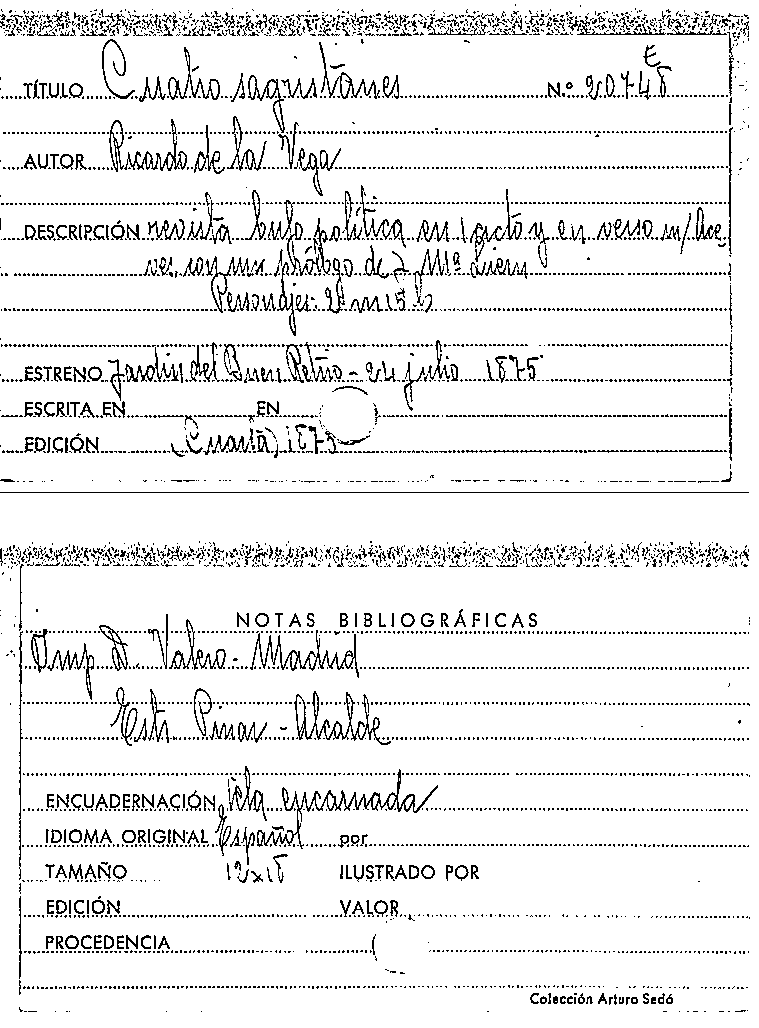 E
TÍTULO Cuatro sagristanes N.º 20748
AUTOR Ricardo de la Vega
DESCRIPCIÓN revista bufo política en 1 acto y en verso m/ Ace
ves, con un prólogo de J. Mª Liern
Personajes: 2 m 15 h
ESTRENO Jardín del Buen Retiro - 24 julio 1875
ESCRITA EN EN
EDICIÓN (Cuarta) 1875
NOTAS BIBLIOGRÁFICAS
Imp D. Valero - Madrid
Estr. Pinar - Alcalde
ENCUADERNACIÓN tela encarnada
IDIOMA ORIGINAL Español por
TAMAÑO 12x18 ILUSTRADO POR
EDICIÓN VALOR
PROCEDENCIA
Colección Arturo Sedó